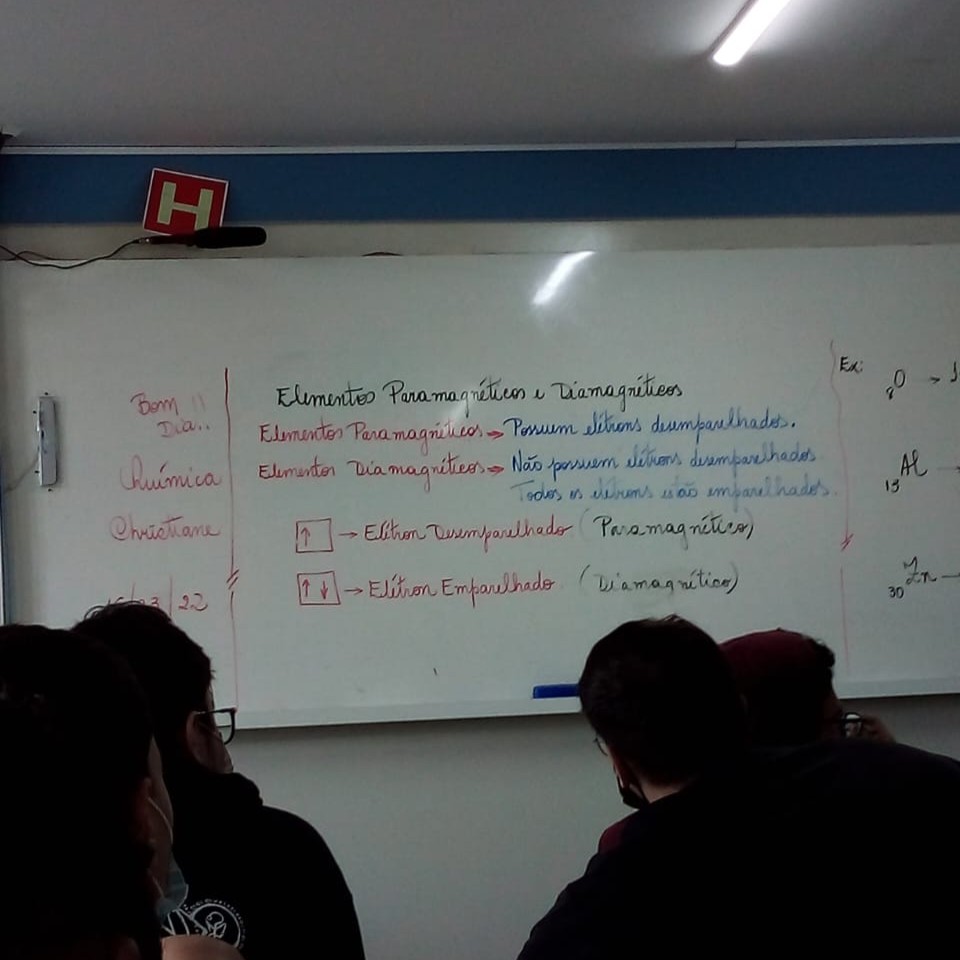 H
Bom !!
Dia..
Química
Christiane
/ 22
Elementos Paramagnéticos e Diamagnéticos
Elementos Paramagnéticos → Possuem elétrons desemparelhados.
Elementos Diamagnéticos → Não possuem elétrons desemparelhados
Todos os elétrons estão emparelhados.
↑ → Elétron Desemparelhado (Paramagnético)
↑↓ → Elétron Emparelhado (Diamagnético)
Ex:
8 O → 1
13 Al →
30 Zn →